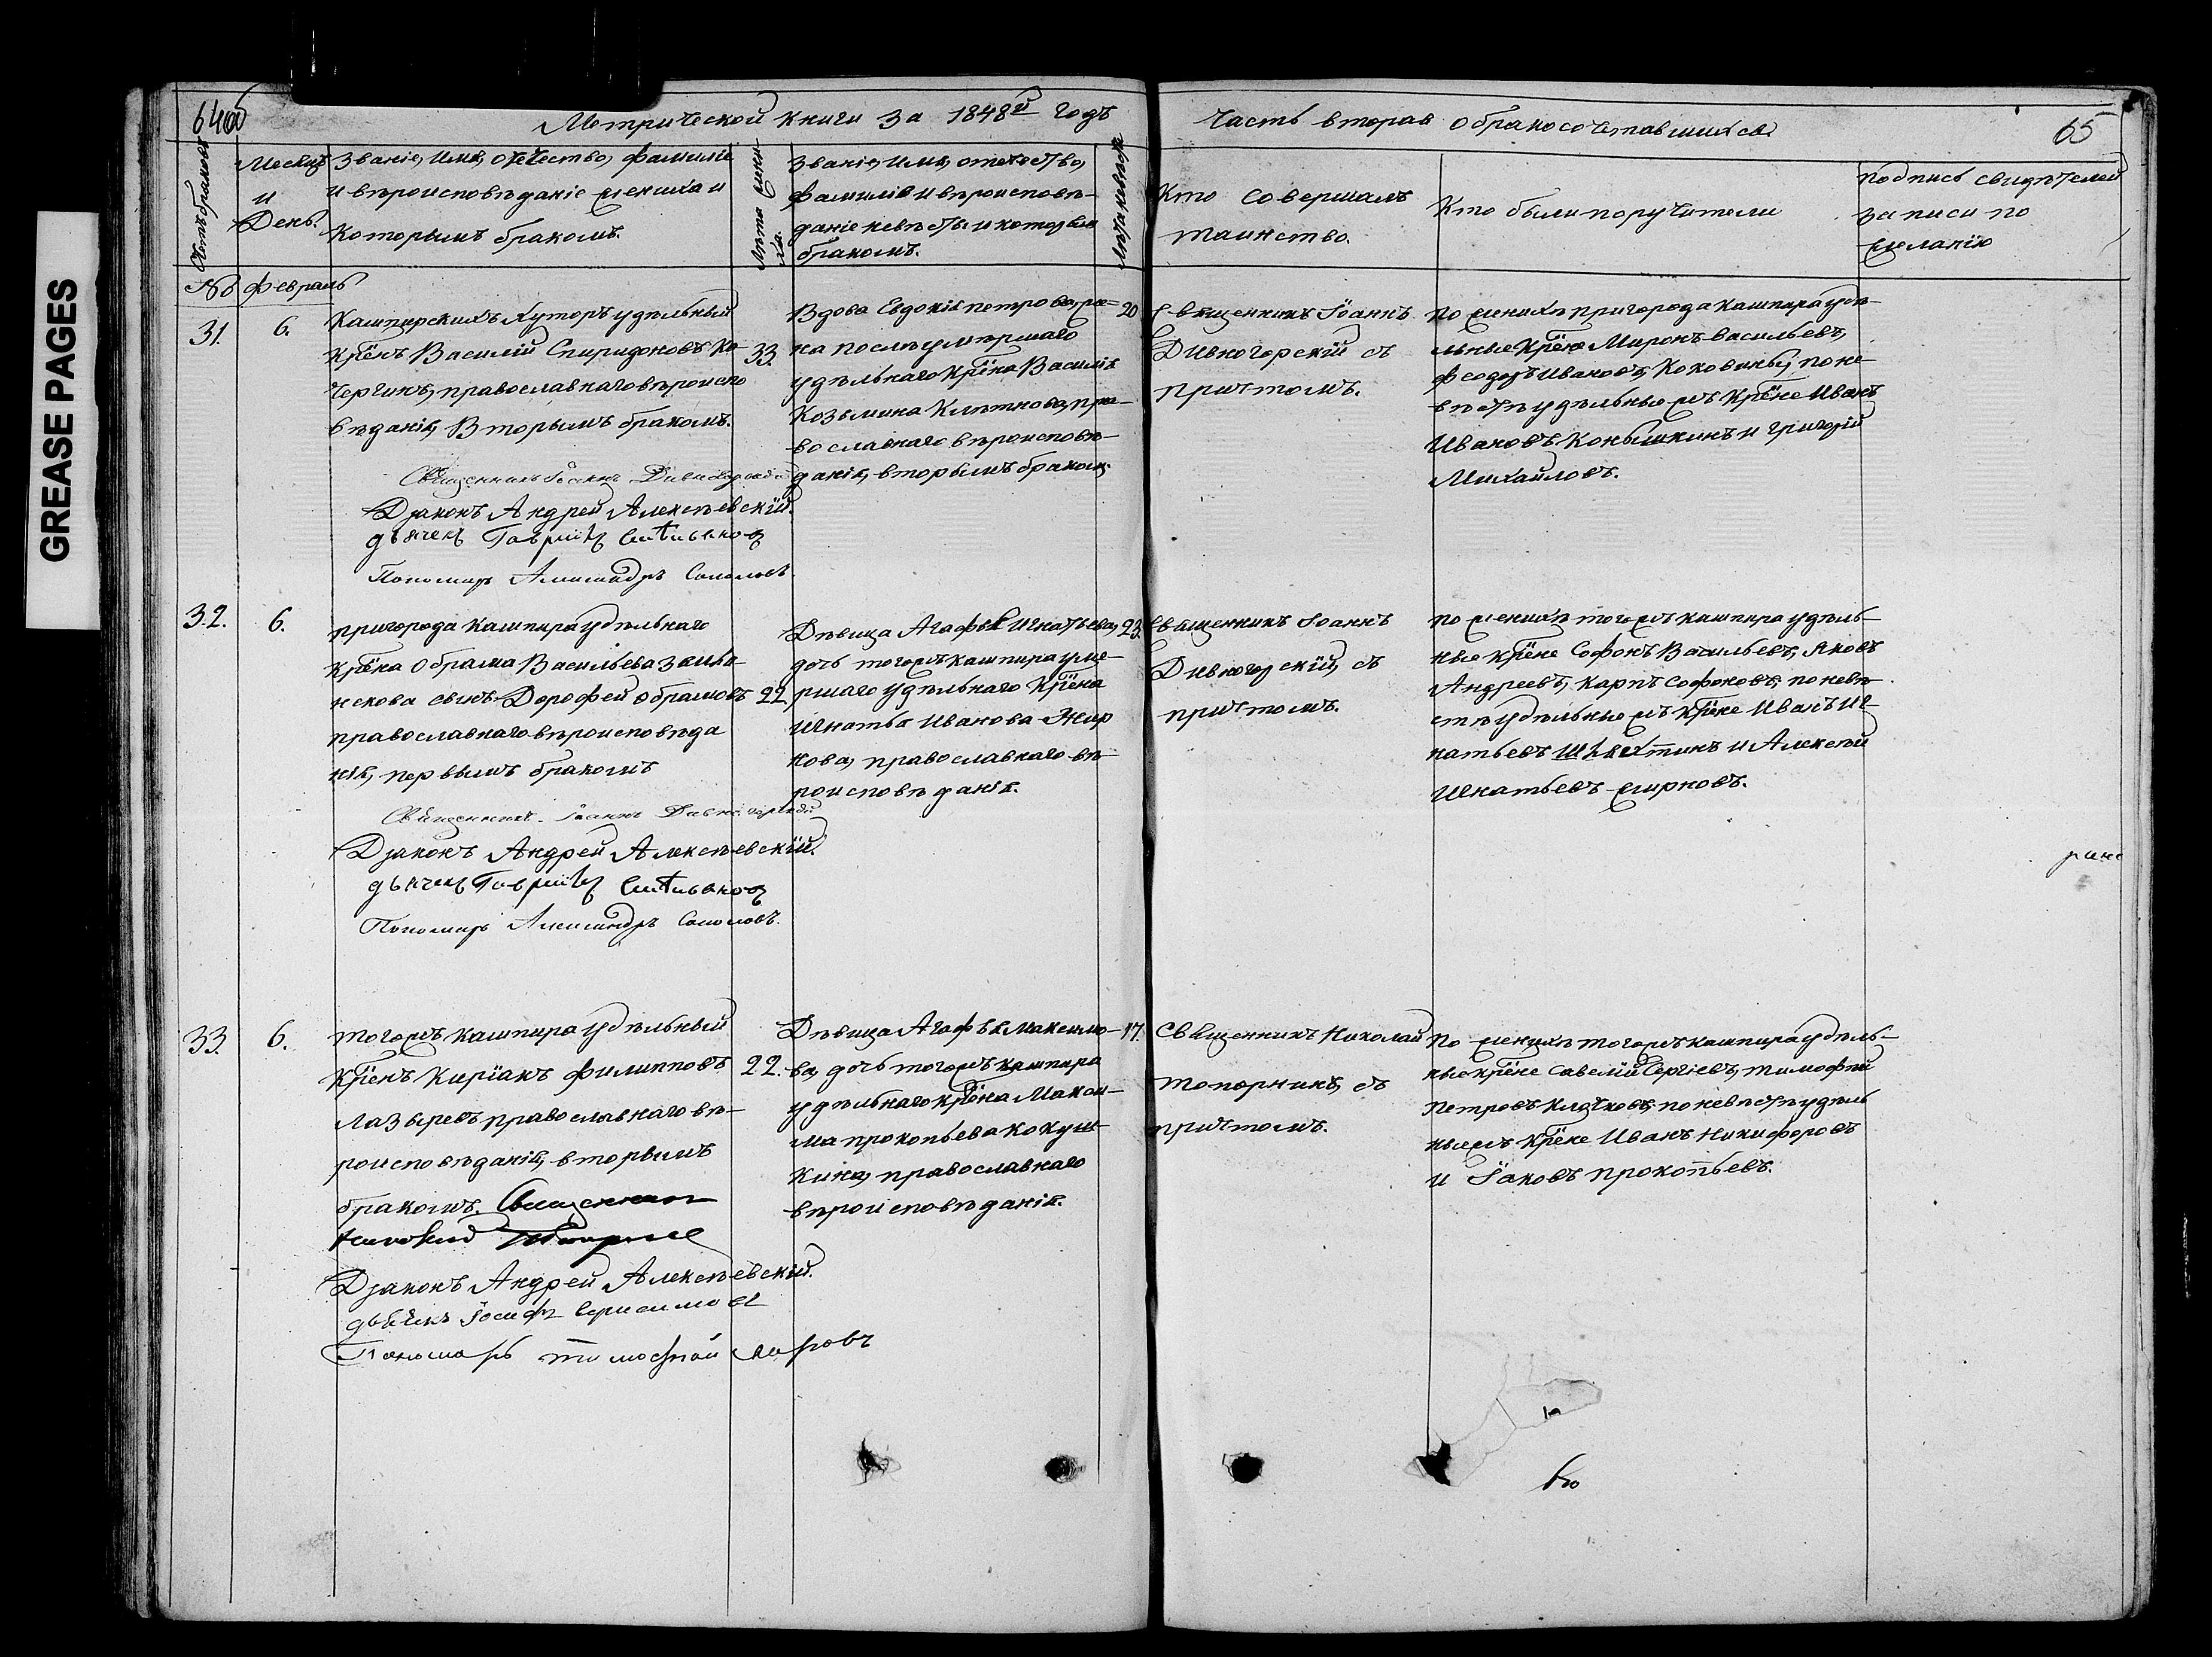 GREASE PAGES
64об
Метрической книги за 1848й годъ
Часть вторая о бракосочетавшихся
65
Счетъ браковъ
Месяцъ
и
День.
Званіе, имя, отечество, фамилія
и вѣроисповѣданіе жениха и
которымъ бракомъ.
Лѣта жениха.
Званіе, имя, отечество,
фамилія и вѣроисповѣ-
даніе невѣсты и которымъ
бракомъ.
Лѣта невѣсты
Кто совершалъ
таинство.
Кто были поручители
подпись свидѣтелей
записи по
желанію
№ февраль
31.
6.
Кашпирскихъ хуторъ удѣльный
крёнъ Василій Спиридоновъ Ко-
чергинъ, православнаго вѣроиспо
вѣданія, вторымъ бракомъ.
Священникъ Іоаннъ Дивногорскій
Дьяконъ Андрей Алексѣевскій.
дьячекъ Гаврилъ
Пономарь Александръ Соколовъ.
33.
Вдова Евдокія петрова, же-
на послѣ умершаго
удѣльнаго крёна Василія
Козьмина Клѣтнова, пра-
вославнаго вѣроисповѣ-
данія, вторымъ бракомъ.
20
Священникъ Іоаннъ
Дивногорскій съ
причтомъ.
по женихѣ пригорода кашпира удѣ-
льные крёне Миронъ васильевъ,
феодоръ Ивановъ, Коковины, по не-
вѣстѣ удѣльные жъ крёне Иванъ
Ивановъ Конышкинъ и григорій
Михайловъ.
32.
6.
пригорода кашпира удѣльнаго
крёна Обрама Васильева
сынъ Дорофей обрамовъ
православнаго вѣроисповѣда
нія, первымъ бракомъ
Священникъ Іоаннъ Дивногорскій
Дьяконъ Андрей Алексѣевскій.
дьячекъ Гаврилъ
Пономарь Александръ Соколовъ.
22
Дѣвица Агафья Игнатьева,
дочь тогожъ кашпира уме-
ршаго удѣльнаго крёна
Игнатья Иванова Жир
нова, православнаго вѣ-
роисповѣданія.
23.
Священникъ Іоаннъ
Дивногорскій, съ
причтомъ.
по женихѣ тогожъ кашпира удѣль-
ные крёне Софонъ Васильевъ, Яковъ
Андреевъ, карпъ софоновъ, по невѣ-
стѣ удѣльные жъ крёне Иванъ Иг-
натьевъ и Алексѣй
Игнатьевъ жирновъ.
33.
6.
тогожъ кашпира удѣльный
крёнъ Киріакъ филипповъ
Лазыревъ православнаго вѣ-
роисповѣданія, вторымъ
бракомъ. Священникъ
Николай Топорнинъ
Дьяконъ Андрей Алексѣевскій.
дьячекъ Іосифъ
Пономарь тимофей
22.
Дѣвица Агафья Максимо-
ва, дочь тогожъ кашпира
удѣльнаго крёна Макси-
ма прокопьева Кокуш
кина, православнаго
вѣроисповѣданія.
17.
Священникъ Николай
топорнинъ, съ
причтомъ.
по женихѣ тогожъ кашпира удѣль-
ные крёне савелій Сергіевъ, тимофей
петровъ Клячковъ, по невѣстѣ удѣль
ные жъ крёне Иванъ Никифоровъ
и Іаковъ прокопьевъ.